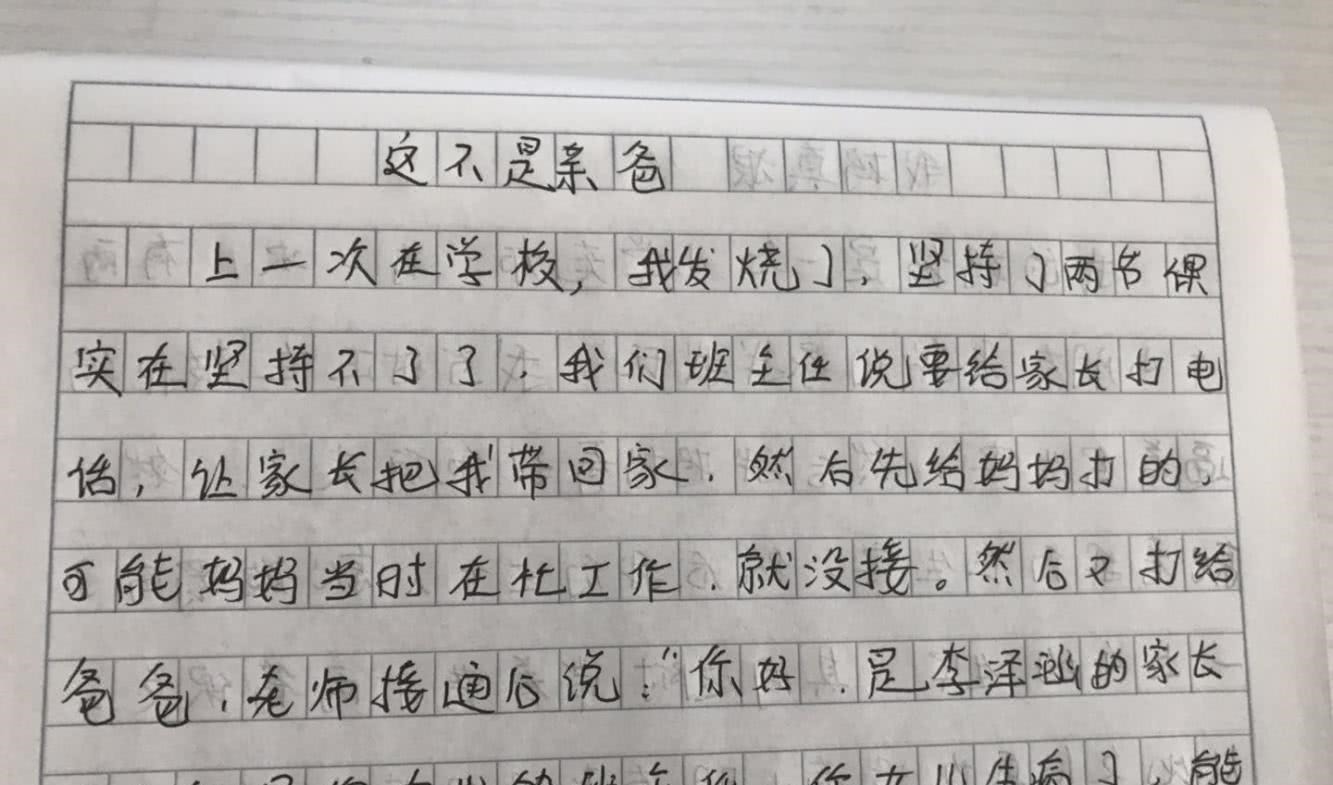 这不是亲爸
上一次在学校，我发烧了，坚持了两节课
实在坚持不了了，我们班主任说要给家长打电
话，让家长把我带回家，然后先给妈妈打的，
可能妈妈当时在忙工作，就没接。然后又打给
爸爸，老师接通后说："你好，是李泽涵的家长
你女儿生病了，能